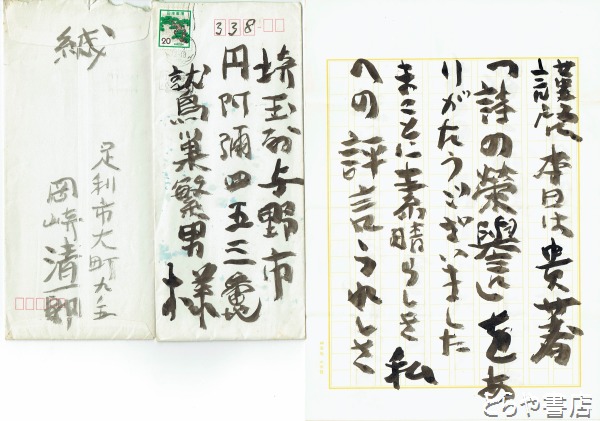 緘
足利市大町九ノ五
岡崎清一郎
日本郵便
20
338
埼玉県与野市
円阿彌四五三
鷲巣繁男様
謹啓 本日は貴著
「詩の榮譽」をあ
りがたうございました
まことに素晴らしき 私
への評言うれしき
とらや書店